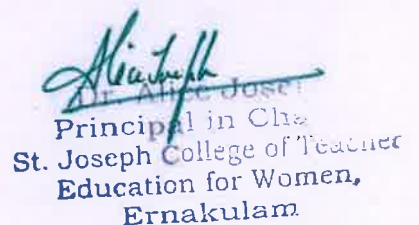 Alice Joseph
Dr. Alice Joseph
Principal in Cha
St. Joseph College of Teacher
Education for Women,
Ernakulam